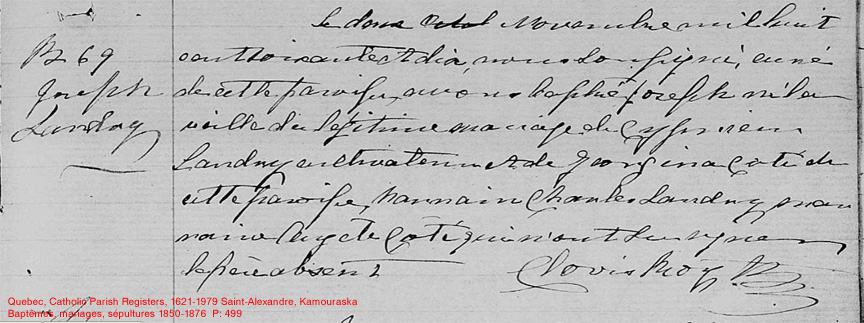 B 69
Joseph
Landry
Le douze Octob Novembre mil huit
cent soixante et dix, nous soussigné, curé
de cette paroisse, avons baptisé Joseph né la
veille du légitime mariage de Cyprien
Landry cultivateur et de Georgina Coté de
cette paroisse, Parrain Charles Landry mar
raine Coté qui n'ont su signer
le père absent
Clovis Roy Ptr
Quebec, Catholic Parish Registers, 1621-1979 Saint-Alexandre, Kamouraska
Baptêmes, mariages, sépultures 1850-1876 P: 499